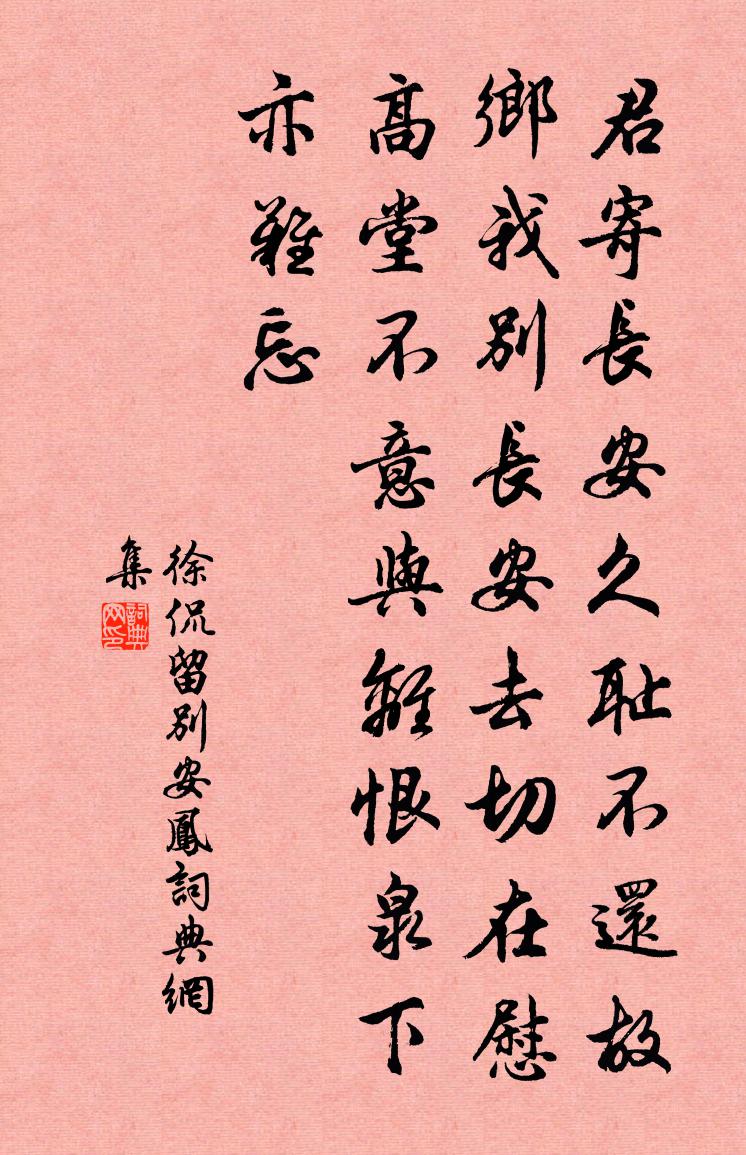 君寄長安久耻不還故
鄉我別長安去切在慰
高堂不意與離恨泉下
亦難忘
徐侃留別安鳳詞典網
集
詞典
网印